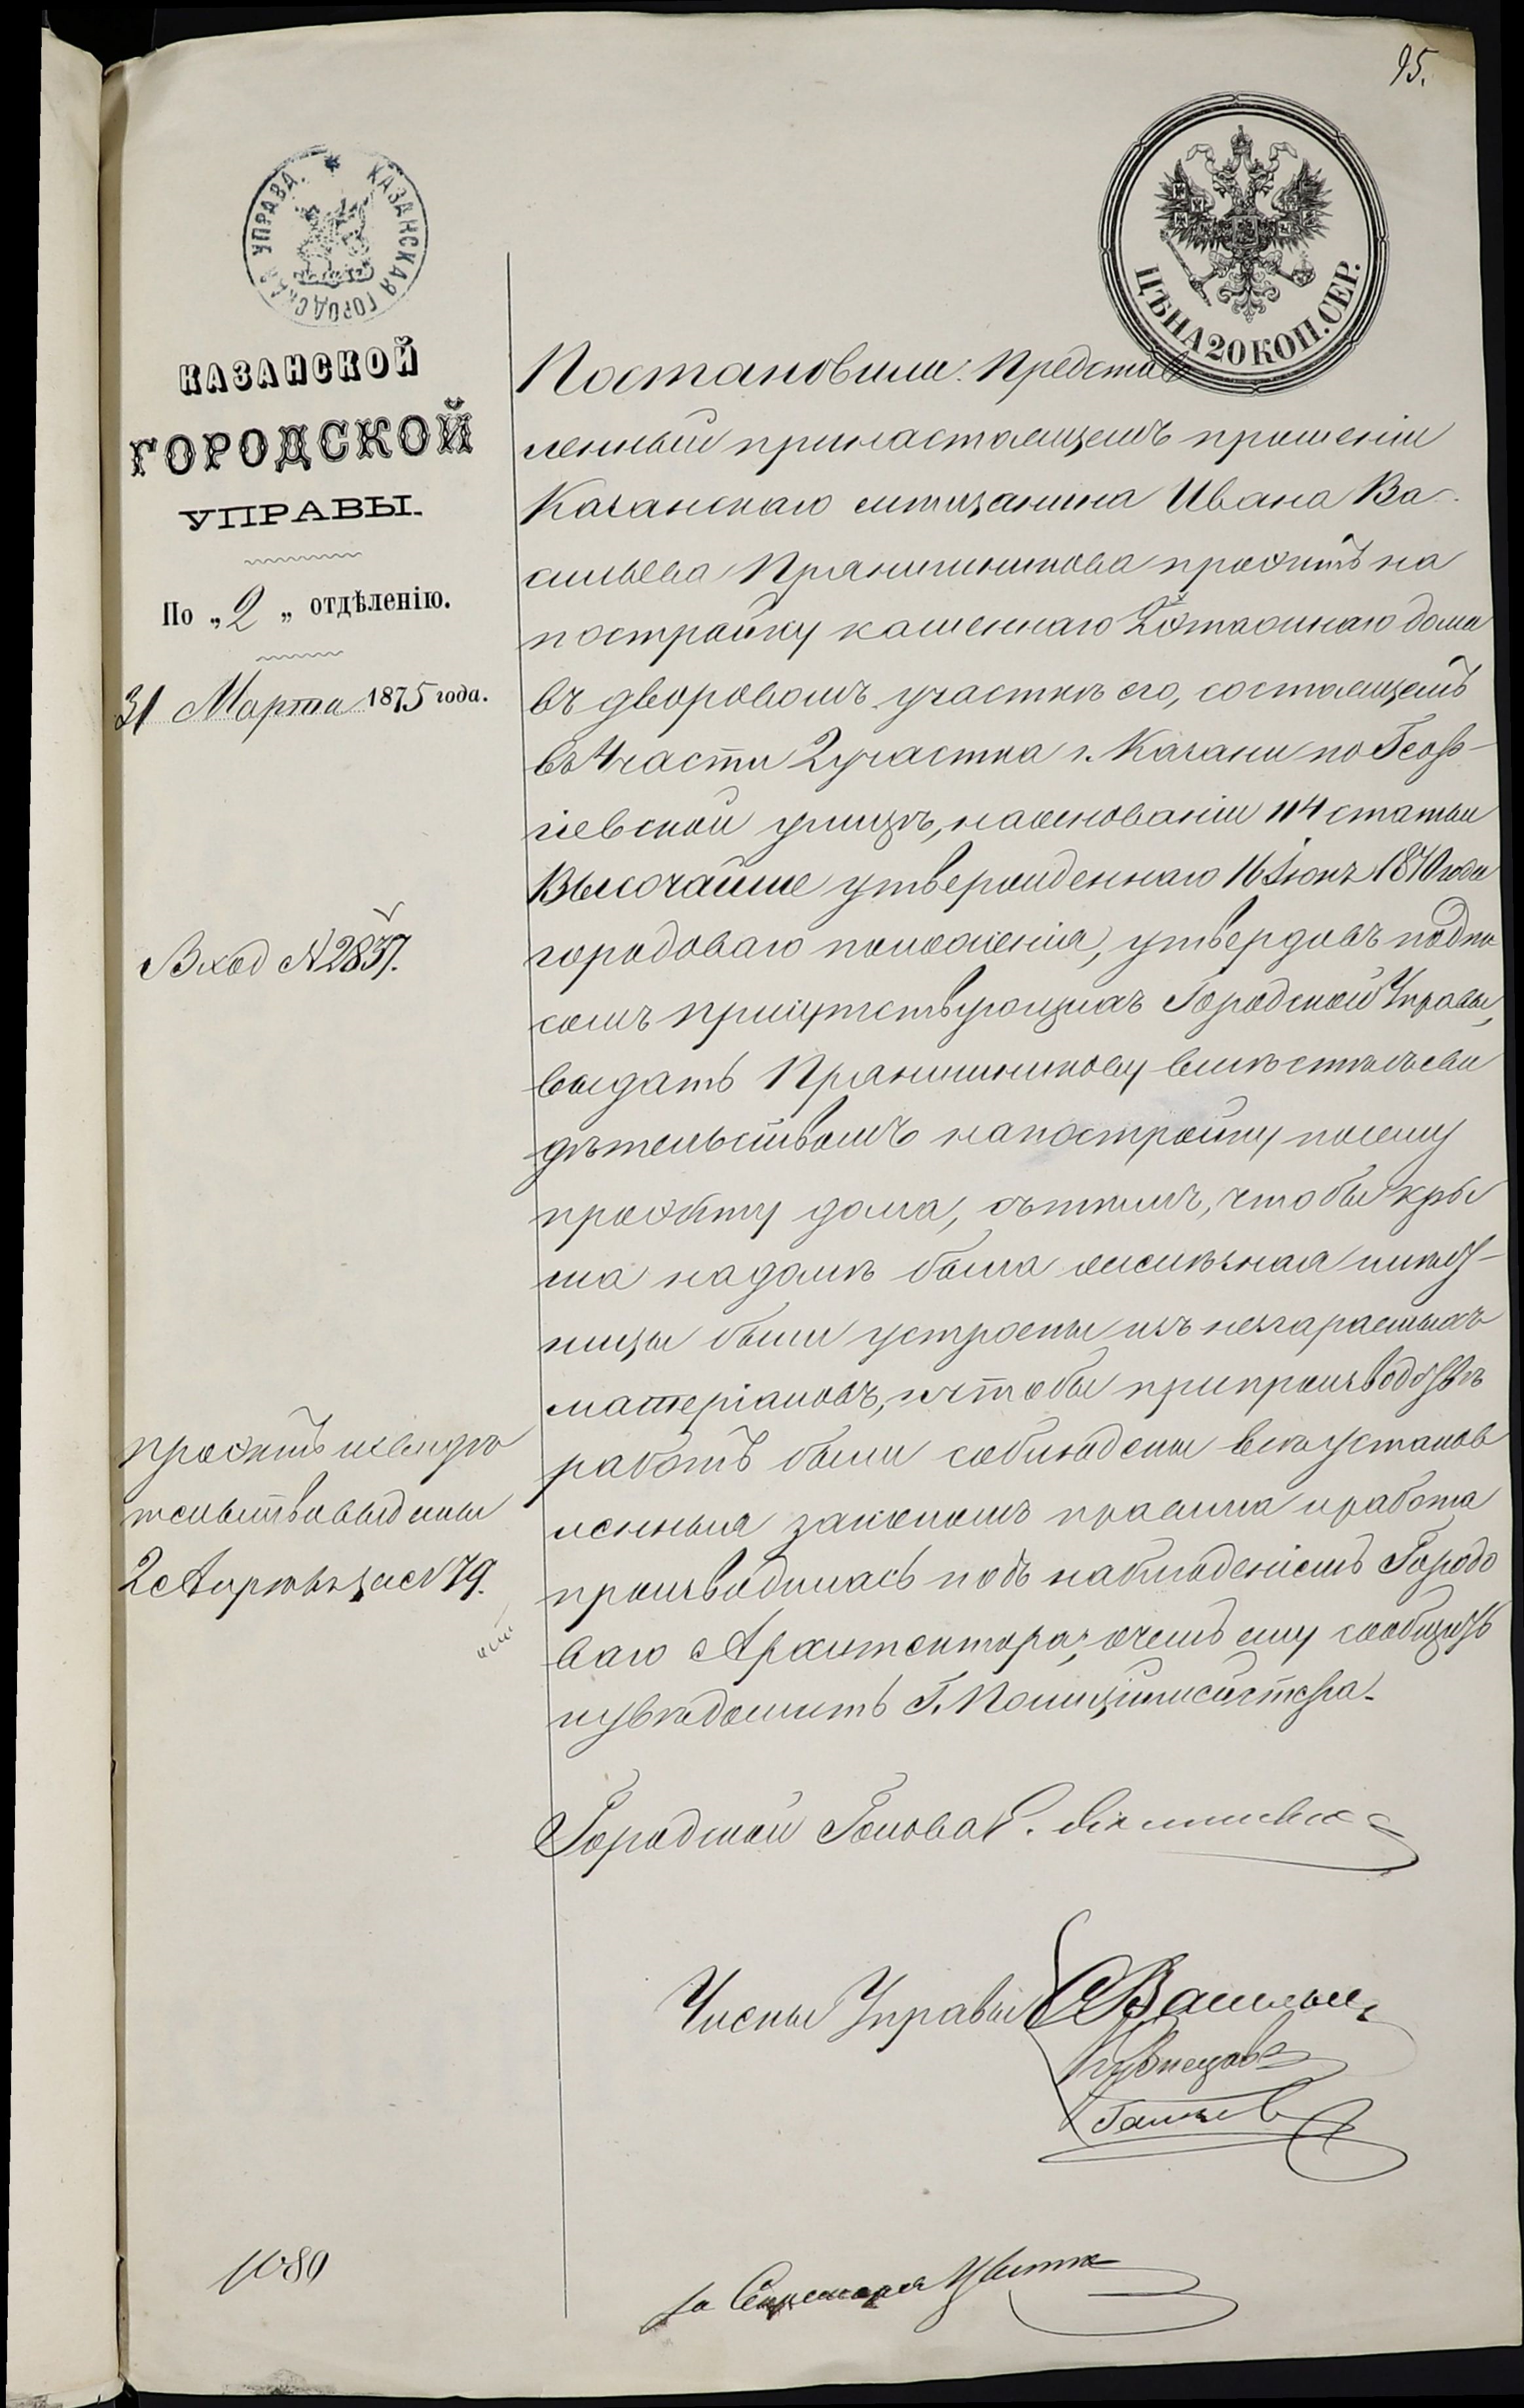 95.
КАЗАНСКАЯ ГОРОДСКАЯ УПРАВА.
ЦѢНА 20 КОП. СЕР.
КАЗАНСКОЙ
ГОРОДСКОЙ
УПРАВЫ.
По „2„ отдѣленію.
31 Марта 1875 года.
Вход № 2837.
Постановили: Представ
ленный при настоящемъ прошеніи
Казанскаго мѣщанина Ивана Ва-
сильева Прянишникова проэктъ на
постройку каменнаго 2хэтажнаго дома
въ дворовомъ участкѣ его, состоящемъ
въ 4 части 2 участка г. Казани по Геор-
гіевской улицѣ, на основаніи 114 статьи
Высочайше утвержденнаго 16 Іюня 1870 года
городоваго положенія, утвердивъ подпи
сомъ присутствующихъ Городской Управы,
выдать Прянишникову вмѣстѣ съ сви
дѣтельствомъ на постройку по сему
проэкту дома, съ тѣмъ, чтобы кры
ша на домѣ была желѣзная и лѣст-
ницы были устроены изъ несгараемыхъ
матеріаловъ, и чтобы при производствѣ
работъ были соблюдены всѣ установ
ленныя закономъ правила и работа
производилась подъ наблюденіемъ Городо
ваго Архитектора, о чемъ ему сообщить
и увѣдомить Г. Полиціймейстера.
проэктъ и свидѣ
тельство выданы
2 Апрѣля за № 79.
Городской Голова Е.
Члены Управы
Кузнецовъ
за Секретаря
1080